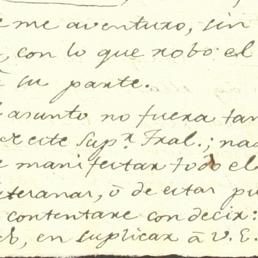 e me aventuro, sin
, con lo que robo el
a su parte.
asunto no fuera tan
este Sup.r Fral.; nad
e manifestar todo el
iteranas, ō de estas pu
contentare con decir:
eb, en suplicar ā V. E.